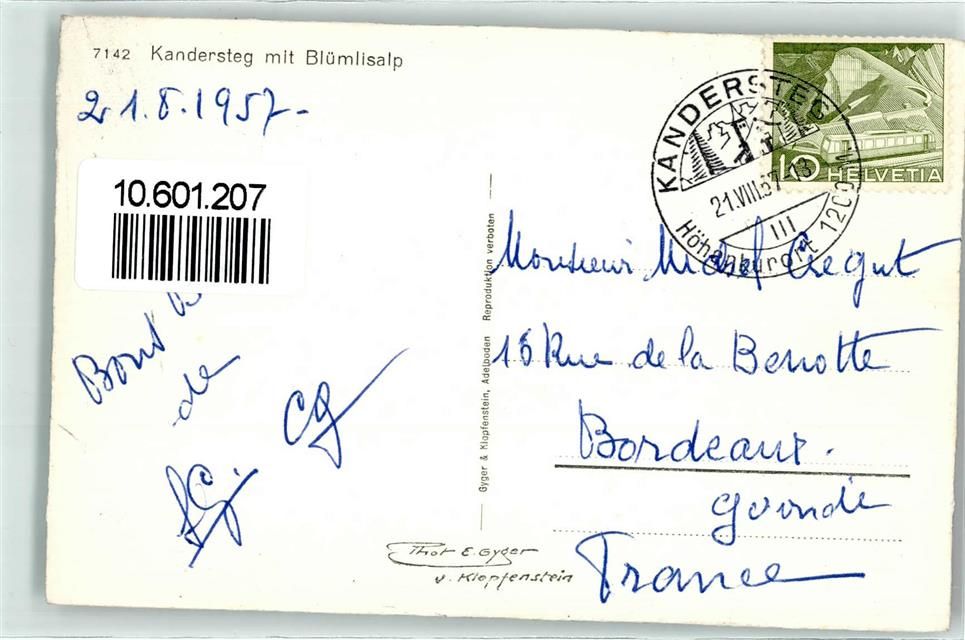 7142 Kandersteg mit Blümlisalp
21.8.1957-
10.601.207
Bons
de
CG
Gyger & Klopfenstein, Adelboden Reproduktion verboten
KANDERSTEG
21.VIII.57-13
III
Höhenkurort 1200 m
10 HELVETIA
Monsieur Michel
Rue de la Benotte
Bordeaux.
Gironde
France
Phot E. Gyger
v. Klopfenstein